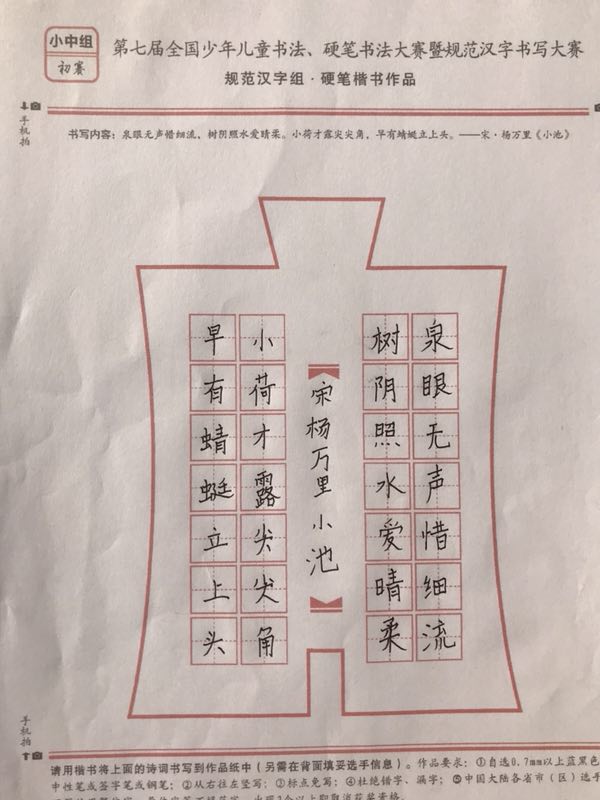 小中组
初赛
第七届全国少年儿童书法、硬笔书法大赛暨规范汉字书写大赛
规范汉字组·硬笔楷书作品
手机拍
书写内容：泉眼无声惜细流，树阴照水爱晴柔。小荷才露尖尖角，早有蜻蜓立上头。——宋·杨万里《小池》
泉眼无声惜细流
树阴照水爱晴柔
宋杨万里小池
小荷才露尖尖角
早有蜻蜓立上头
手机拍
请用楷书将上面的诗词书写到作品纸中（另需在背面填妥选手信息）。作品要求：①自选0.7mm以上蓝黑色
中性笔或签字笔或钢笔；②从右往左竖写；③标点免写；④杜绝错字、漏字；⑤中国大陆各省市（区）选手